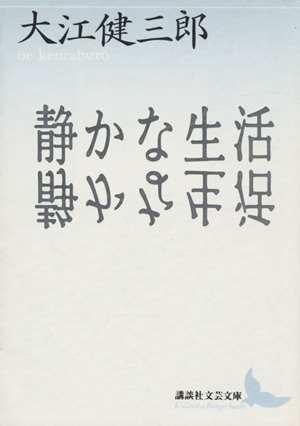 大江健三郎
ōe kenzaburō
静かな生活
講談社文芸文庫
Kōdansha Bungei bunko